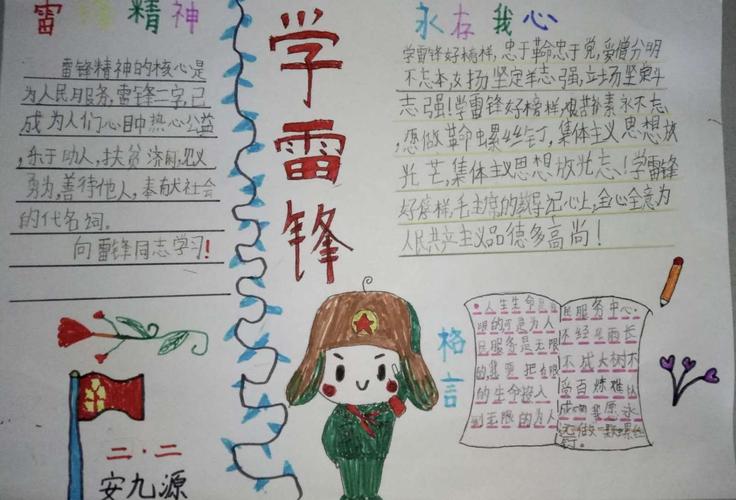 雷锋精神
雷锋精神的核心是
为人民月服务,雷锋二字,已
成为人们心目中热心公益
,乐于助人,扶贫济困,见义
勇为,善待他人,奉献社会
的代名词。
向雷锋同志学习!
二·二
安九源
学雷锋
永存我心
学雷锋好榜样,忠于革命忠于党,爱憎分明
不忘本,立场坚定羊志强,立场坚
志强!学雷锋好榜样,艰苦朴素永不忘
,愿做革命虫螺丝钉,集体主义思想放
光芒,集体主义思想放光芒!学雷锋
好榜样,毛主席的教导记心上,全心全意为
人民共产主义品德多高尚!
格言
人生生命是有
限的可是为人
民服务是无限
的我要把有限
的生命投入
到无限的为人
民服务中心.
不经风雨长
不成大树不
受百炼难以
成钢我愿永
远做一颗螺丝
钉.